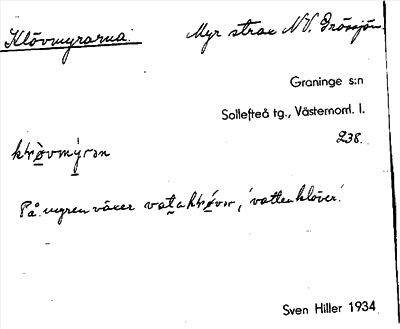 Klövmyrarna.
Myr strax N.V. Grössjön.
Graninge s:n
Sollefteå tg., Västernorrl. l.
238.
På myren växer
, 'vattenklöver'.
Sven Hiller 1934